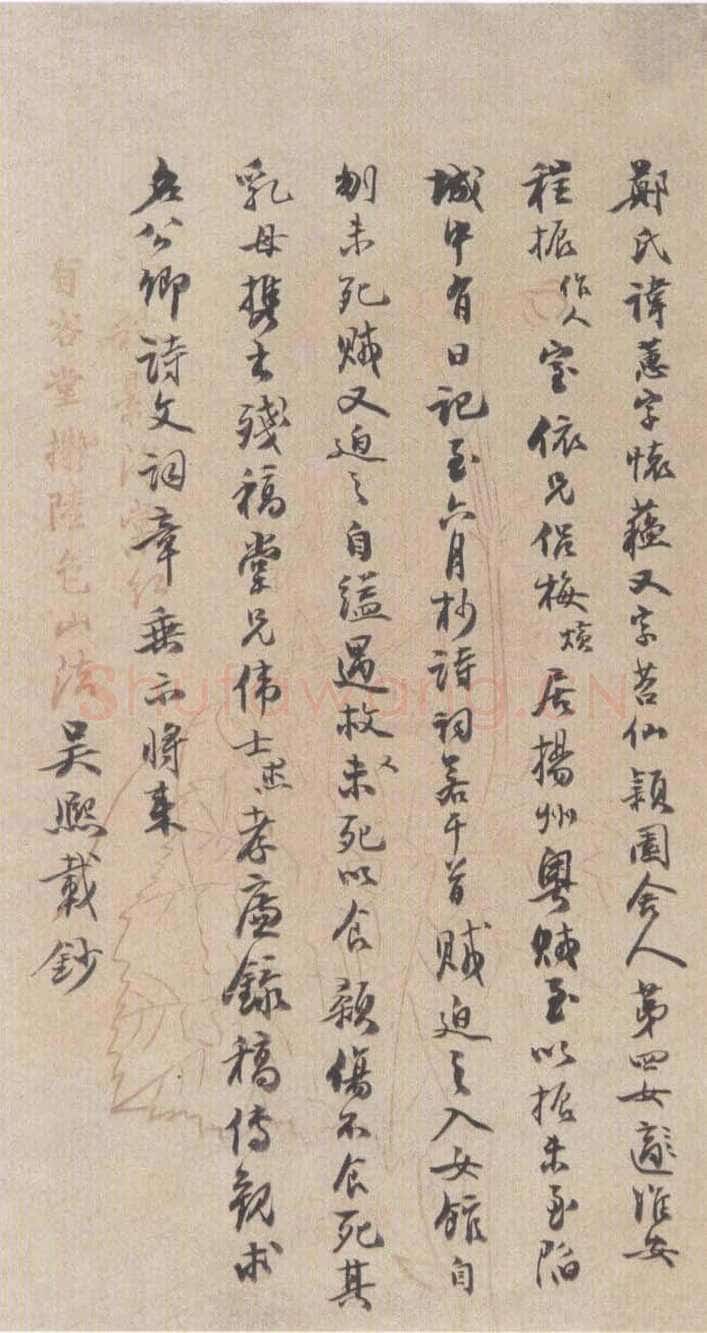 鄭氏諱蕙字懷蘊又字苕仙穎園舍人第四女適淮安
程振作人室依兄侶梅居揚州粵賊至以振未至陷
城中有日記至六月杪詩詞若干首賊迫之入女館自
刎未死賊又迫之自縊遇救又未死以食顙傷不食死其
乳母攜出殘稿堂兄偉士孝廉錄稿傳觀求
名公卿詩文詞章垂示將來
吳熙載鈔
堂撫陸包山法
Shufawang.CN